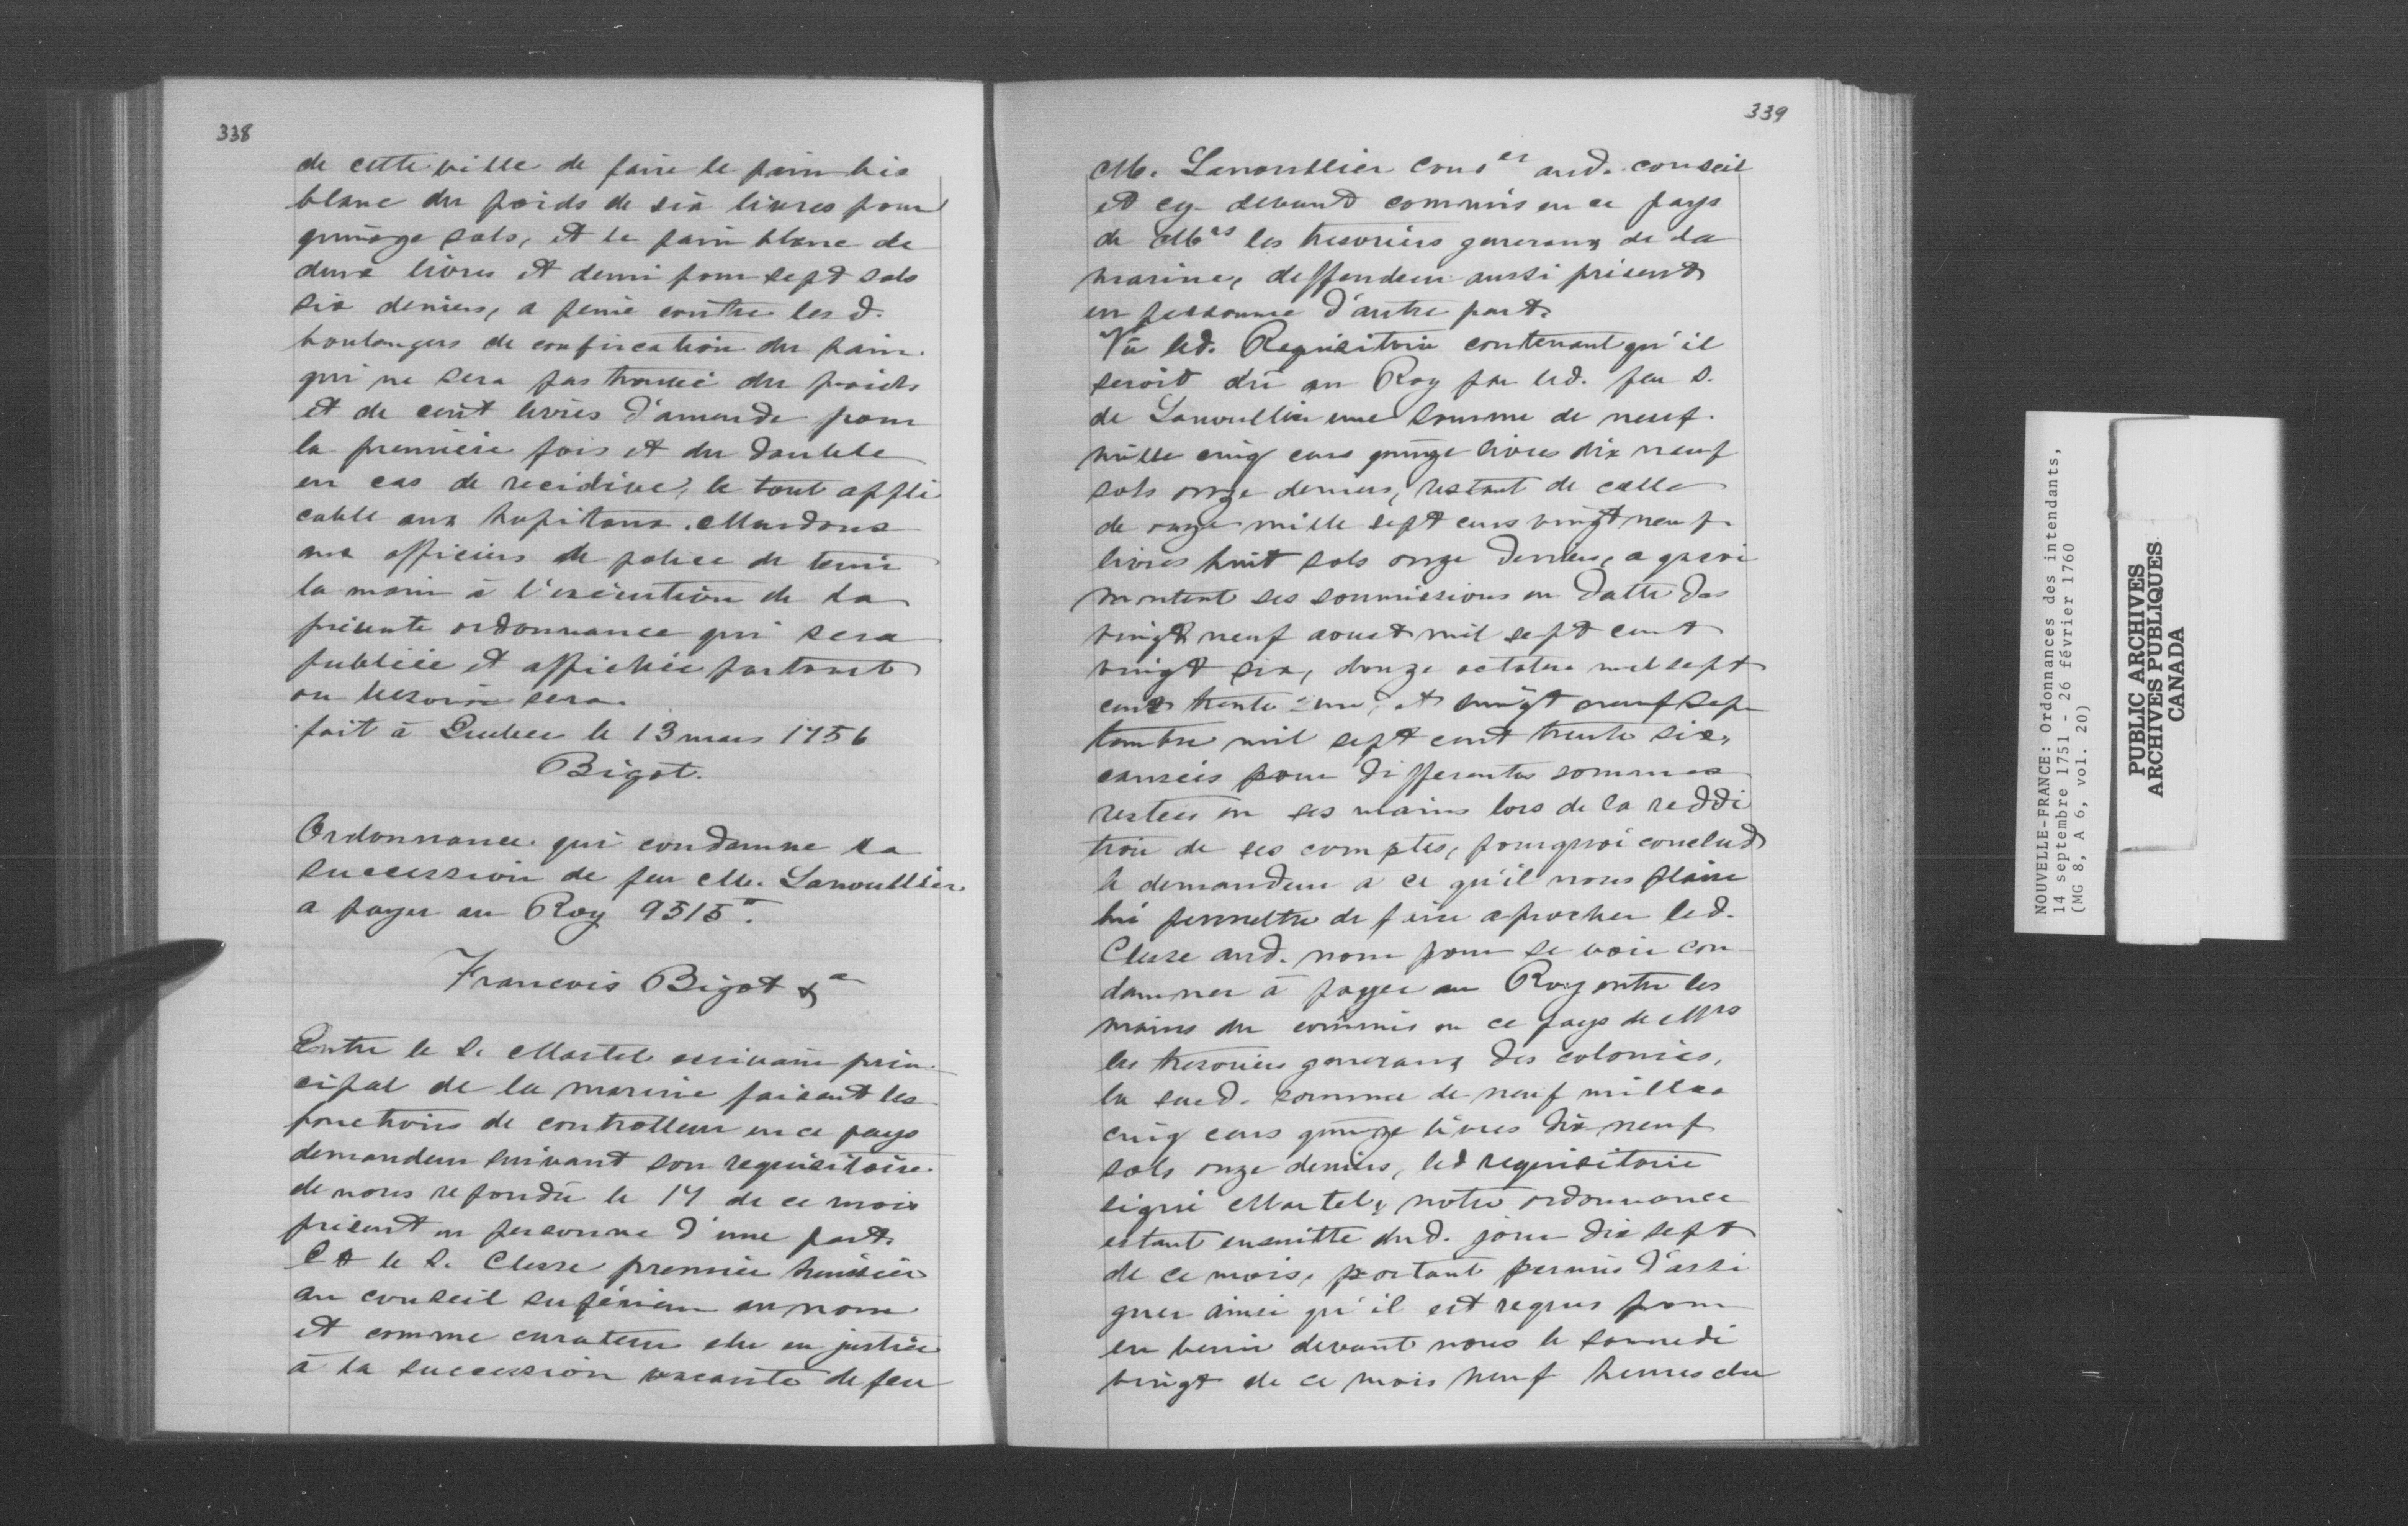 338
de cette ville de faire le pain bis
blanc du poids de six livres pour
quinze sols, et le pain blanc de
deux livres et demi pour sept sols
six deniers, a peine contre les d.
boulangers de confiscation du pain
qui ne sera pas trouvé du poids
et de cent livres d'amende pour
la première fois et du double
en cas de recidive, le tout appli
cable aux hopitaux. Mandons
aux officiers de police de tenir
la main à l'exécution de la
présente ordonnance qui sera
publiée et affichée partout
ou besoin sera.
fait à Quebec le 13 mars 1756
Bigot.
Ordonnance qui condamne la
succession de feu M. Lanoullier
a payer au Roy 9515".
Francois Bigot &a
Entre le S. Martel ecrivain prin-
cipal de la marine faisant les
fonctions de controlleur en ce pays
demandeur suivant son requisitoire
de nous repondu le 17 de ce mois
présent en personne d'une part
Et le S. Clesse premier huissier
au conseil supérieur au nom
et comme curateur elu en justice
à la succession vacante de feu
339
M. Lanoullier Conser aud. conseil
et cy devant commis en ce pays
de Mrs les tresoriers generaux de la
marine, deffendeur aussi présent
en personne d'autre part.
Vû led. Requisitoire contenant qu'il
seroit dû au Roy par led. feu S.
de Lanoullier une somme de neuf
mille cinq cens quinze livres dix neuf
sols onze deniers, restant de celle
de onze mille sept cens vingt neuf
livres huit sols onze deniers, a quoi
montent ses soumissions en datte des
vingt neuf aoust mil sept cent
vingt six, douze octobre mil sept
cens trente une, et vingt neuf sep
tembre mil sept cent trente six,
causées pour differentes sommes
restées en ses mains lors de la reddi
tion de ses comptes, pourquoi conclud
le demandeur a ce qu'il nous plaise
lui permettre de faire aprocher led.
Clesse aud. nom pour se voir con-
damner à payer au Roy entre les
mains du commis en ce pays de Mrs
les tresoriers generaux des colonies,
la sud. somme de neuf milles
cinq cens quinze livres dix neuf
sols onze deniers, led requisitoire
signé Martel, notre ordonnance
estant ensuitte dud. jour dix sept
de ce mois, portant permis d'assi
gner ainsi qu'il est requis pour
en venir devant nous le samedi
vingt de ce mois neuf heures du
NOUVELLE-FRANCE: Ordonnances des intendants,
14 septembre 1751 - 26 février 1760
(MG 8, A 6, vol. 20)
PUBLIC ARCHIVES
ARCHIVES PUBLIQUES
CANADA